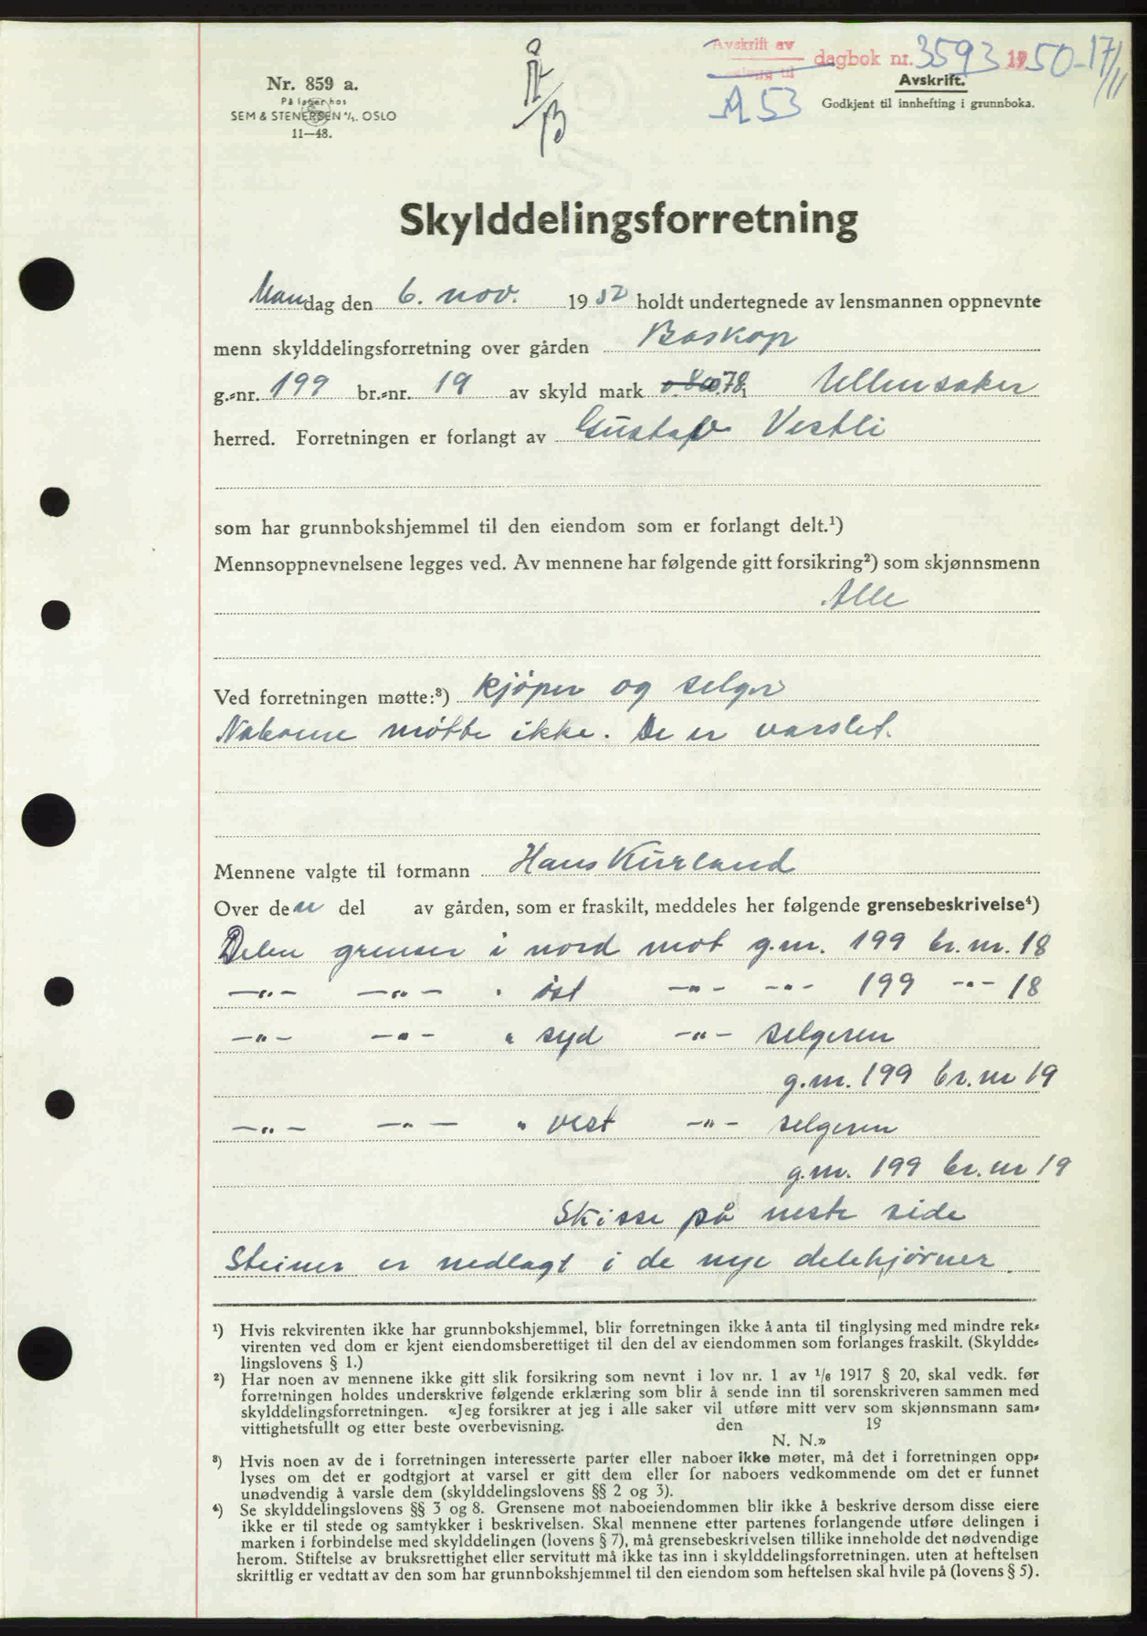 Nr. 859 a.
På lager hos
SEM & STENERSEN A/S. OSLO
11—48.
Avskrift av
dagbok nr. 3593 1950-17/11
A 53
Avskrift.
Godkjent til innhefting i grunnboka.
Skylddelingsforretning
Mandag den 6. nov. 19 50 holdt undertegnede av lensmannen oppnevnte
menn skylddelingsforretning over gården Baskop
g.-nr. 199 br.-nr. 19 av skyld mark 0.78 i Ullensaker
herred. Forretningen er forlangt av Gustav Vestli
som har grunnbokshjemmel til den eiendom som er forlangt delt.¹)
Mennsoppnevnelsene legges ved. Av mennene har følgende gitt forsikring²) som skjønnsmenn
Alle
Ved forretningen møtte:³) kjøper og selger
Naboene møtte ikke. De er varslet.
Mennene valgte til formann Hans Kurland
Over den del av gården, som er fraskilt, meddeles her følgende grensebeskrivelse⁴)
Delen grenser i nord mot g.nr. 199 br.nr. 18
—"— —"— " øst —"— —"— 199 —"— 18
—"— —"— " syd —"— selgeren
g.nr. 199 br.nr 19
—"— —"— " vest —"— selgeren
g.nr. 199 br.nr 19
Skisse på neste side
Steiner er nedlagt i de nye delehjørner.
¹) Hvis rekvirenten ikke har grunnbokshjemmel, blir forretningen ikke å anta til tinglysing med mindre rek-
virenten ved dom er kjent eiendomsberettiget til den del av eiendommen som forlanges fraskilt. (Skyldde-
lingslovens § 1.)
²) Har noen av mennene ikke gitt slik forsikring som nevnt i lov nr. 1 av 1/6 1917 § 20, skal vedk. før
forretningen holdes underskrive følgende erklæring som blir å sende inn til sorenskriveren sammen med
skylddelingsforretningen. «Jeg forsikrer at jeg i alle saker vil utføre mitt verv som skjønnsmann sam-
vittighetsfullt og etter beste overbevisning. den 19
N. N.»
³) Hvis noen av de i forretningen interesserte parter eller naboer ikke møter, må det i forretningen opp-
lyses om det er godtgjort at varsel er gitt dem eller for naboers vedkommende om det er funnet
unødvendig å varsle dem (skylddelingslovens §§ 2 og 3).
⁴) Se skylddelingslovens §§ 3 og 8. Grensene mot naboeiendommen blir ikke å beskrive dersom disse eiere
ikke er til stede og samtykker i beskrivelsen. Skal mennene etter partenes forlangende utføre delingen i
marken i forbindelse med skylddelingen (lovens § 7), må grensebeskrivelsen tillike inneholde det nødvendige
herom. Stiftelse av bruksrettighet eller servitutt må ikke tas inn i skylddelingsforretningen. uten at heftelsen
skriftlig er vedtatt av den som har grunnbokshjemmel til den eiendom som heftelsen skal hvile på (lovens § 5).